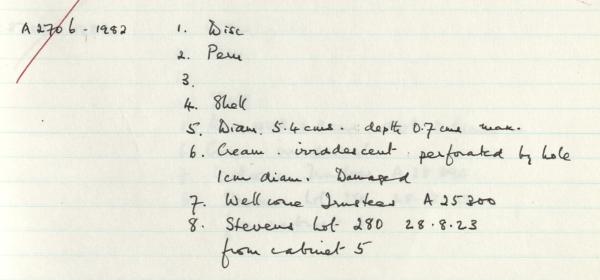 A 2706 - 1982 1. Disc
2. Peru
3.
4. Shell
5. Diam. 5.4 cms. depth 0.7 cms max.
6. Cream . irradescent . perforated by hole
1cm diam. Damaged
7. Wellcome Trustees A 25300
8. Stevens Lot 280 28.8.23
from cabinet 5